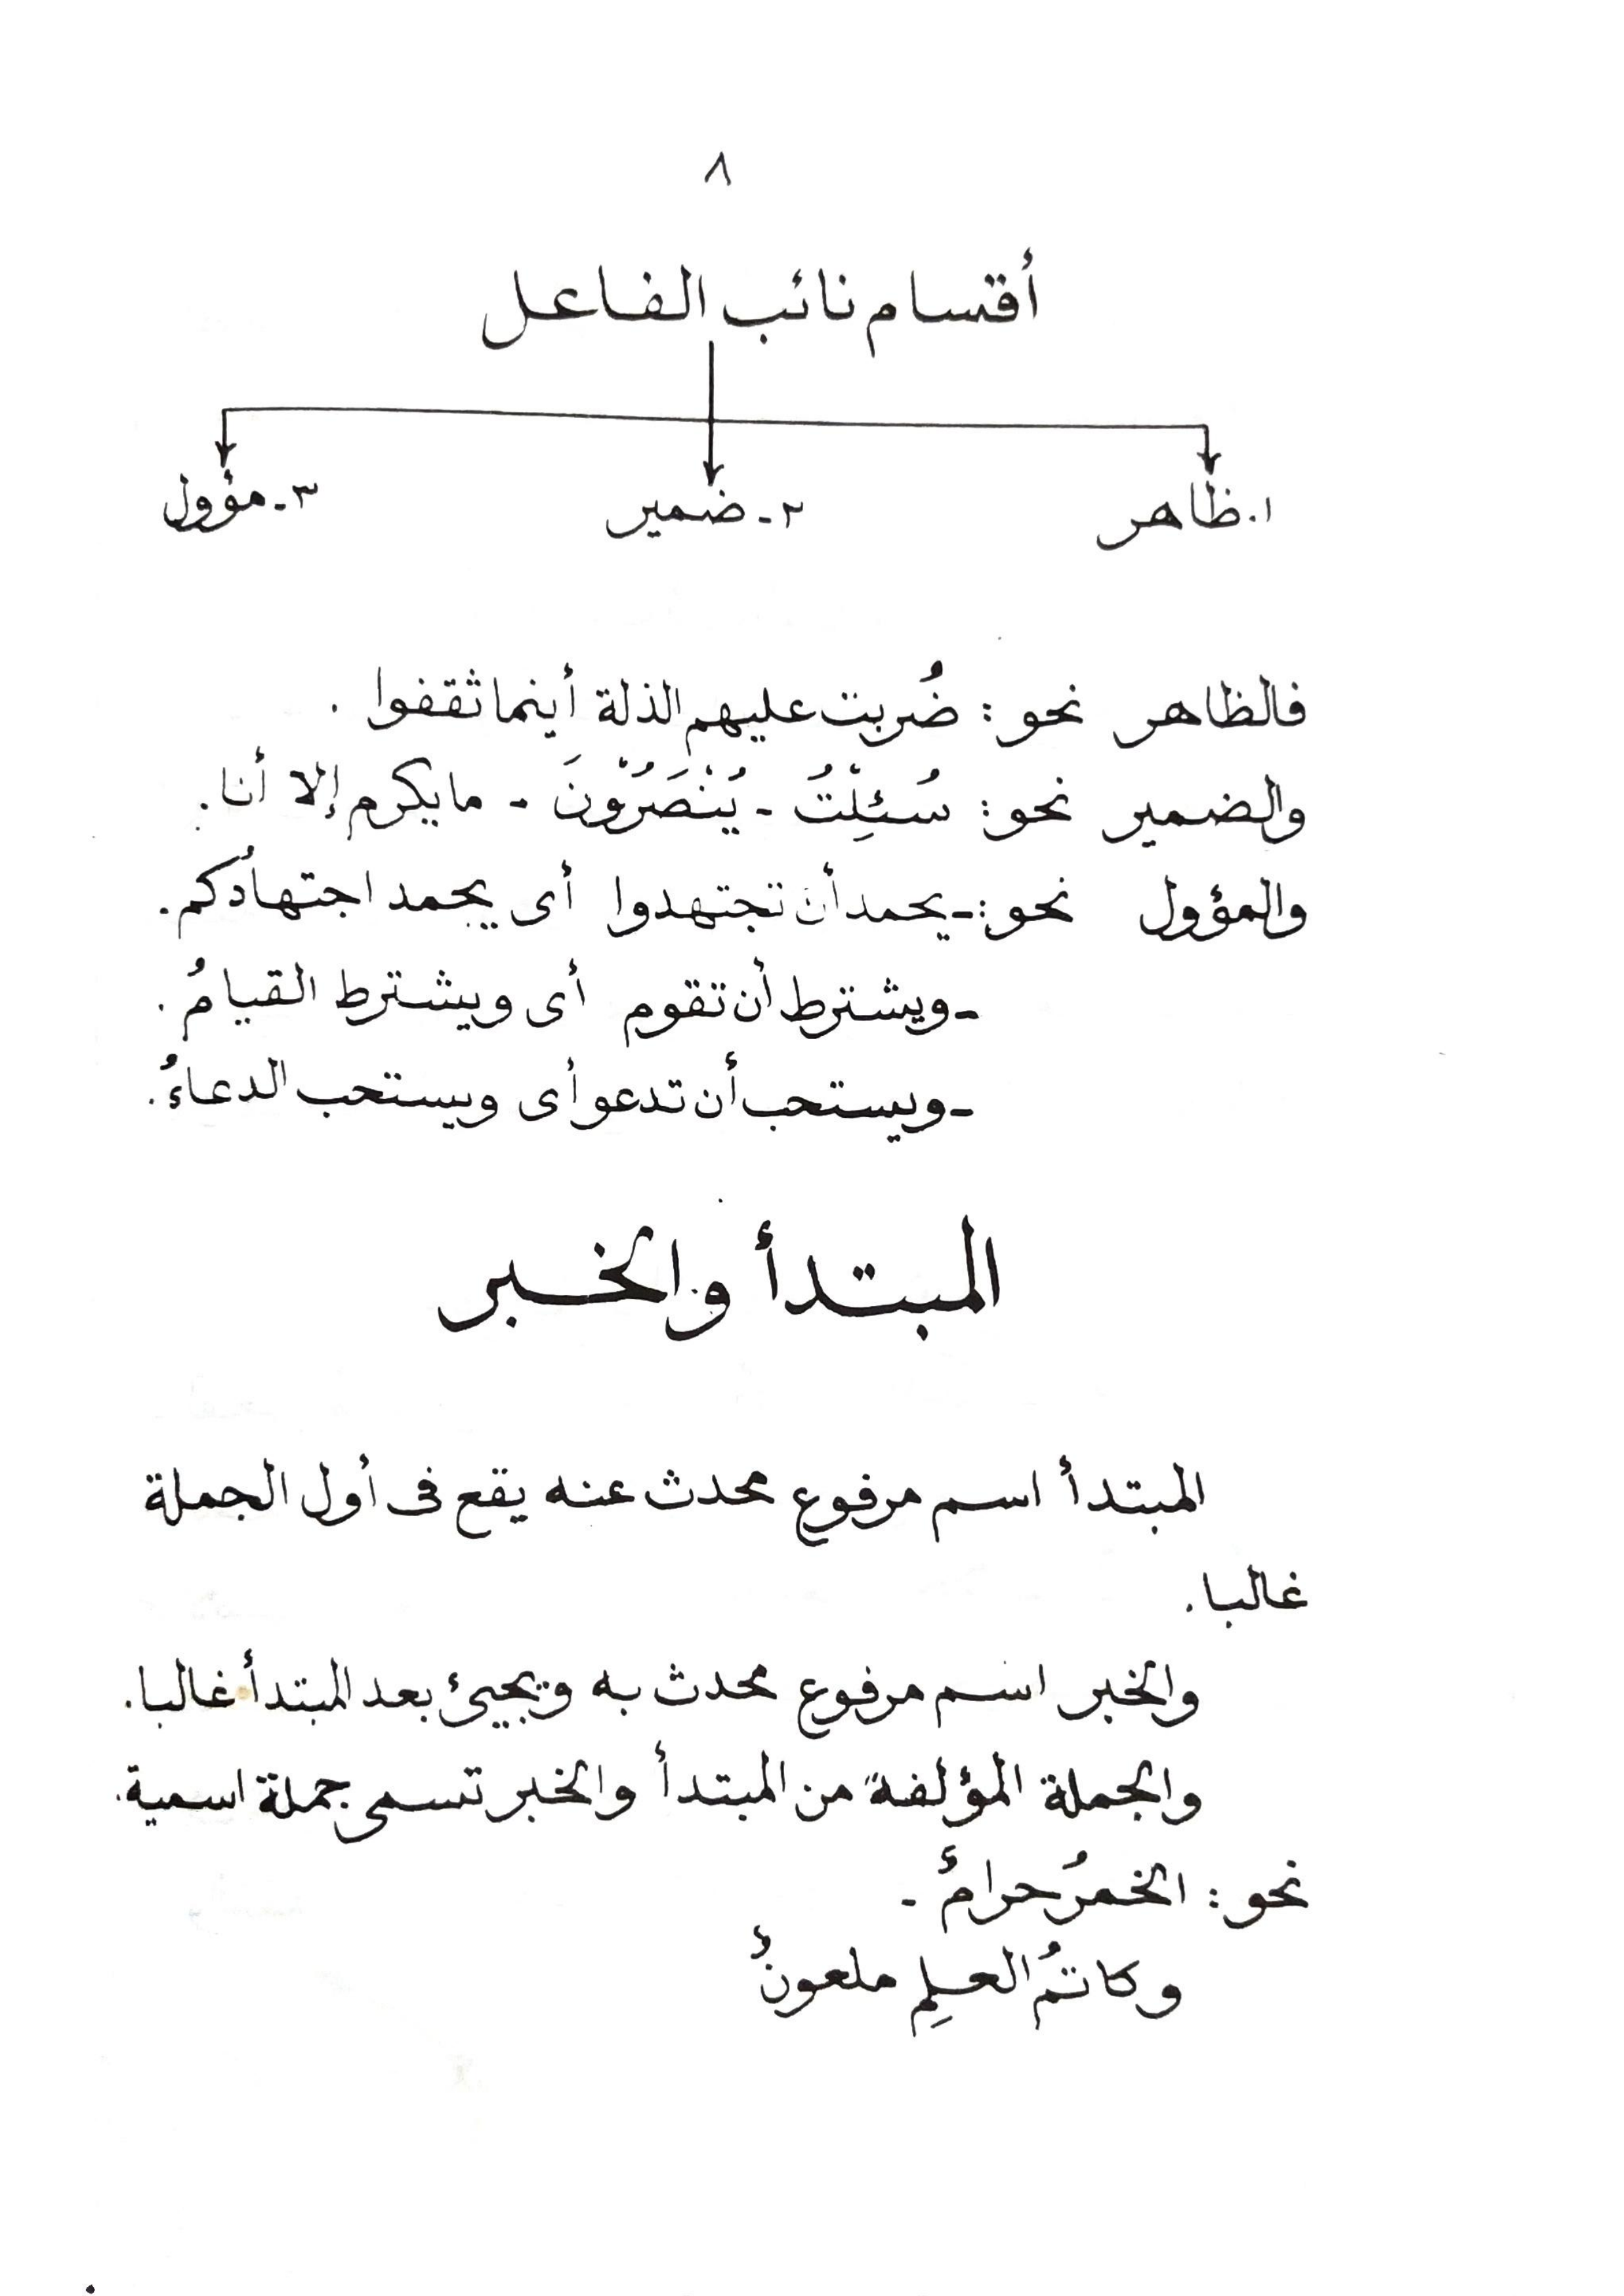 ٨
أقسام نائب الفاعل
١. ظاهر ٢ـ ضمير ٣ـ مؤول
فالظاهر نحو: ضُربت عليهم الذلة أينما ثقفوا .
والضمير نحو: سُئِلْتُ ـ يُنْصَرُوْنَ ـ ما يكرم إلا أنا.
والمؤول نحو: ـ يحمد أن تجتهدوا أى يحمد اجتهادُكم.
ـ ويشترط أن تقوم أى ويشترط القيامُ.
ـ ويستحب أن تدعو أى ويستحب الدعاءُ.
المبتدأ والخبر
المبتدأ اسم مرفوع محدث عنه يقع فى أول الجملة
غالبا.
والخبر اسم مرفوع محدث به ويجيئ بعد المبتدأ غالبا.
والجملة المؤلفة من المبتدأ والخبر تسمى جملة اسمية.
نحو: الخمرُ حرامٌ ـ
وكاتمُ العلمِ ملعونٌ